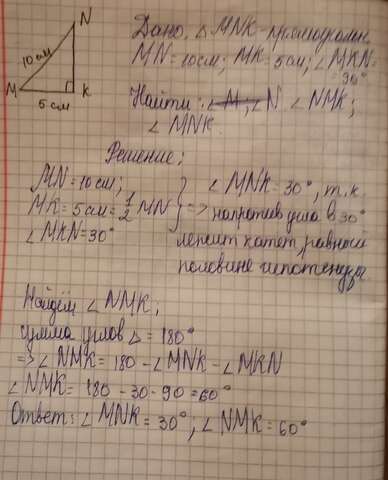 N
10см
M
K
5 см
Дано: △ MNK - прямоугольн.
MN = 10см; MK = 5см; ∠MKN =
= 90°
Найти: ∠M, ∠N ∠NMK;
∠ MNK.
Решение:
MN = 10см;
MK = 5см = 1/2 MN
∠MKN = 30°
} =>
∠ MNK = 30°, т.к.
напротив угла в 30°
лежит катет, равный
половине гипотенузы.
Найдём ∠NMK;
сумма углов △ = 180°
=> ∠ NMK = 180 - ∠MNK - ∠MKN
∠ NMK = 180 - 30 - 90 = 60°
Ответ: ∠ MNK = 30°; ∠ NMK = 60°